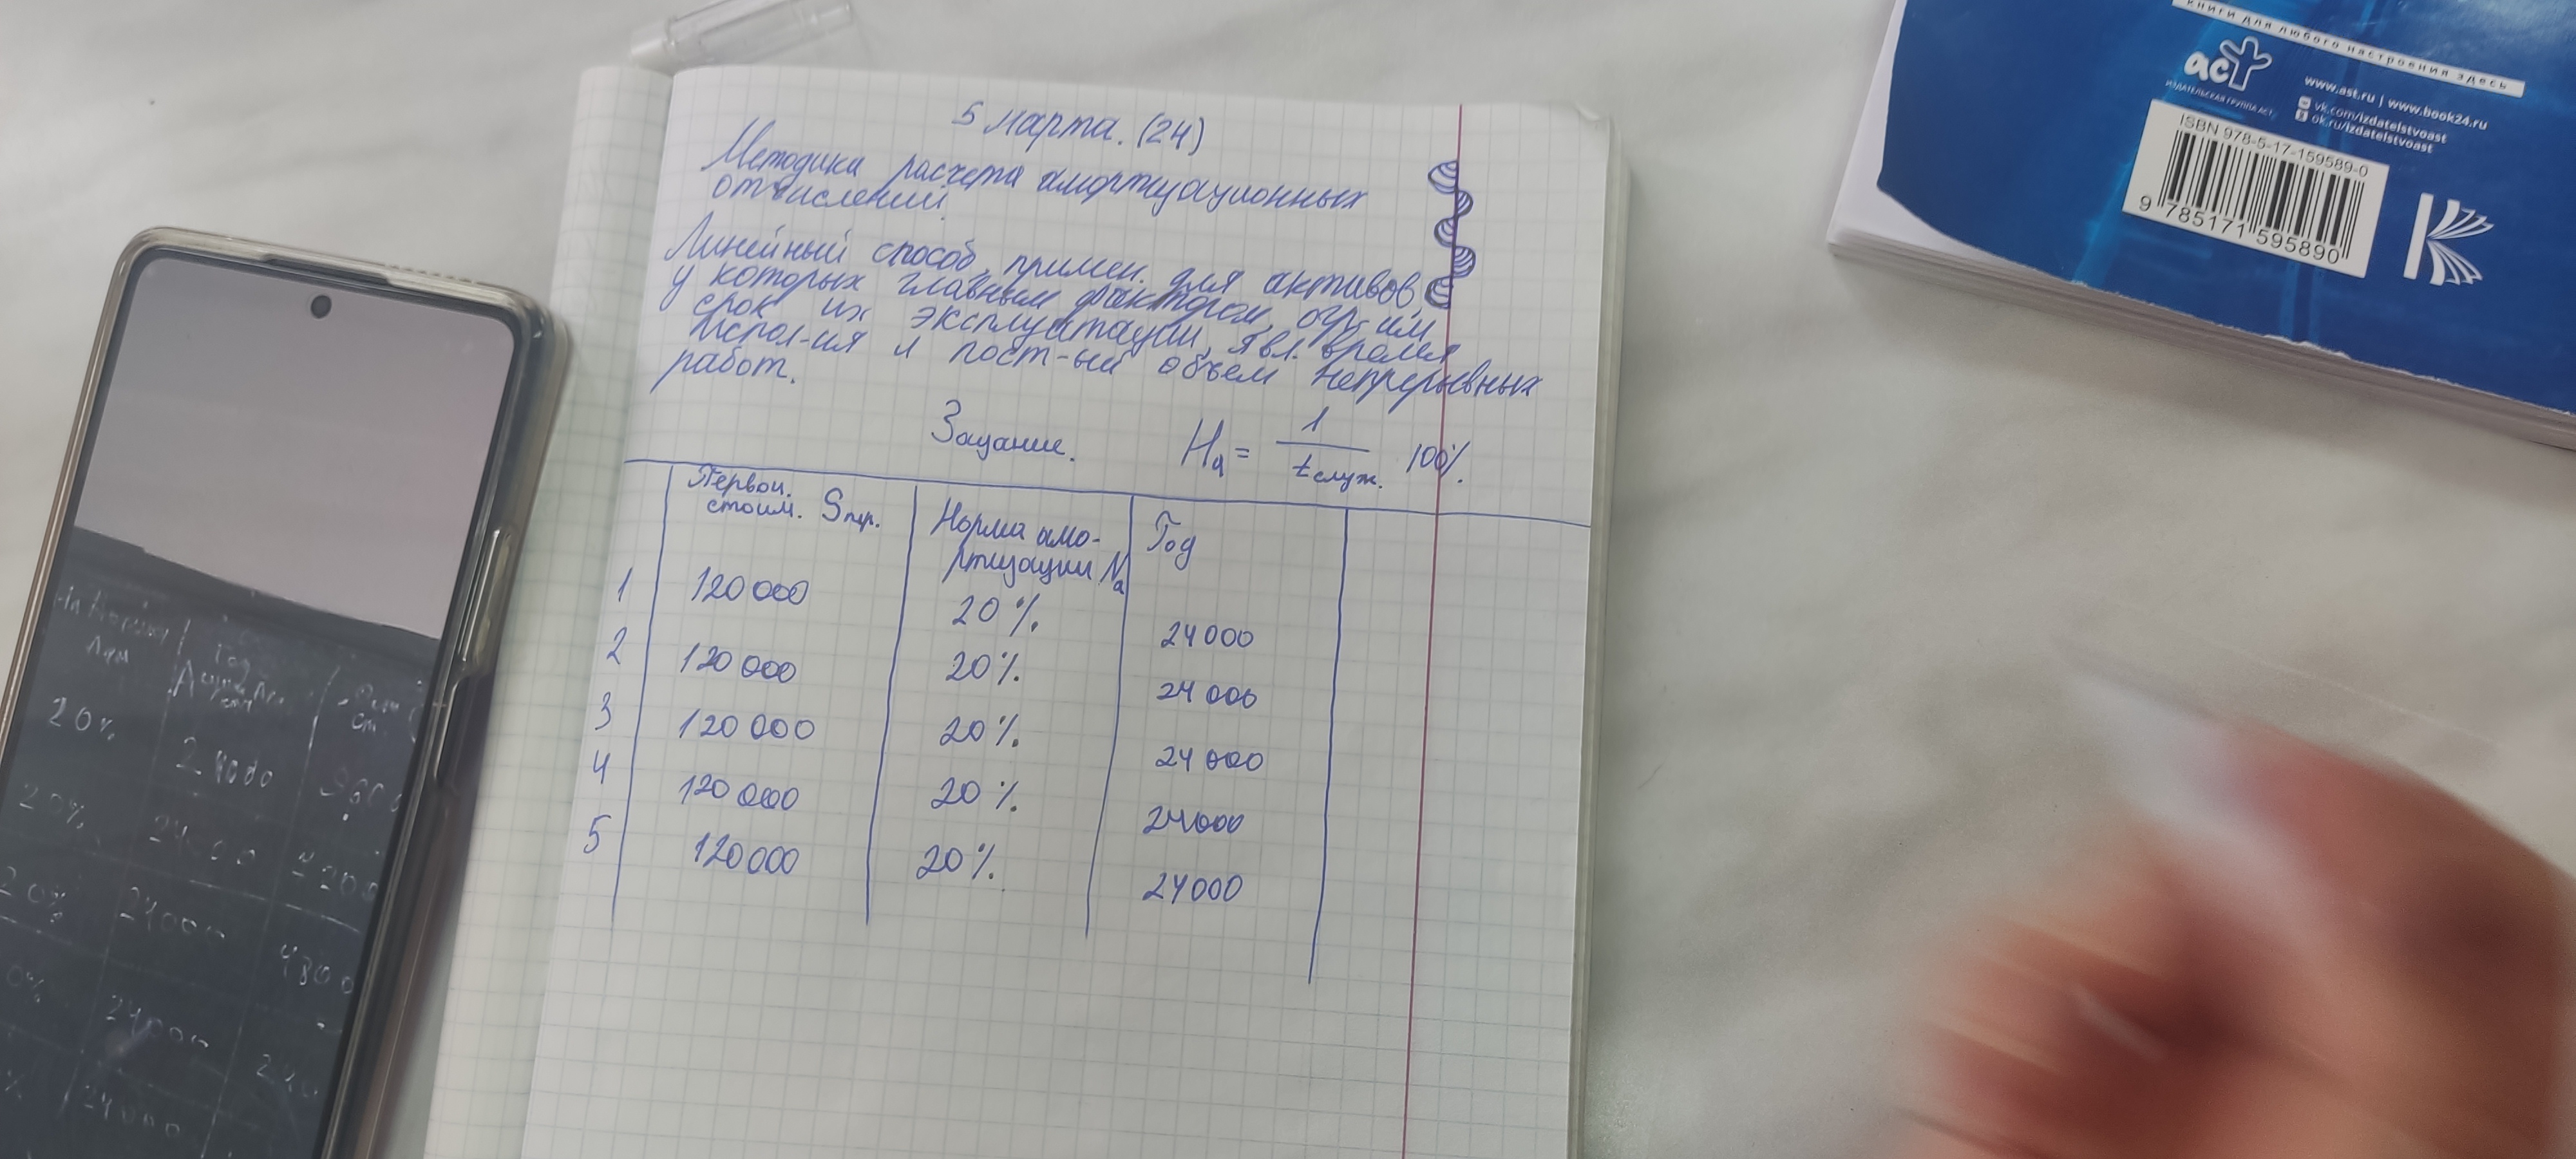 5 марта. (24)
Методика расчета амортизационных
отчислений.
Линейный способ, примен. для активов,
у которых главным фактором, огр-им
срок их эксплуатации, явл. время
испол-ия и пост-ый объем непрерывных
работ.
Задание. На = 1 / tслуж. 100%.
Первон.
стоим. Sпр.
Норма амо-
ртизации Na
Год
1 120 000 20%. 24000
2 120 000 20%. 24 000
3 120 000 20%. 24 000
4 120 000 20%. 24000
5 120000 20%. 24000
20% 24000
20% 24000
20% 24000
0% 24000
% 24000
книги для любого настроения здесь
аст
ИЗДАТЕЛЬСКАЯ ГРУППА АСТ
www.ast.ru | www.book24.ru
vk.com/izdatelstvoast
ok.ru/izdatelstvoast
ISBN 978-5-17-159589-0
9 785171 595890